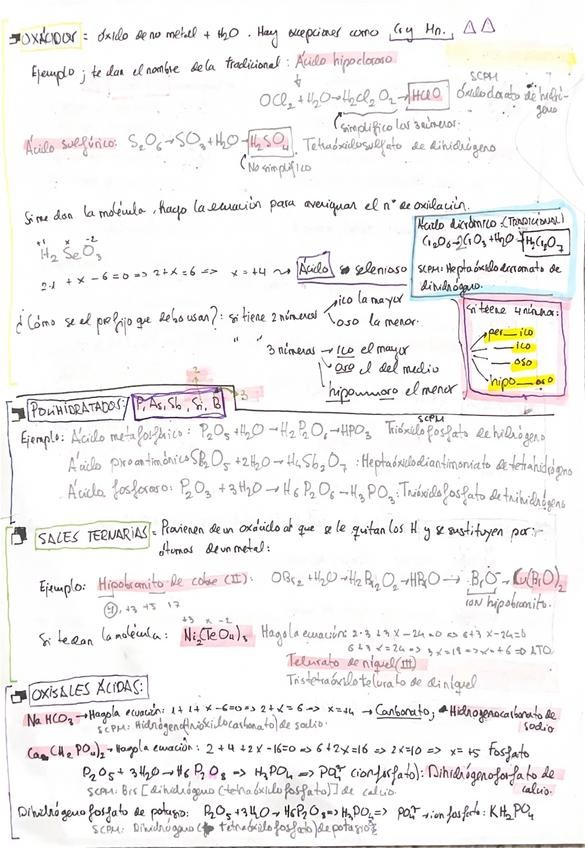 OXÁCIDOS = óxido de no metal + H2O. Hay excepciones como Cr y Mn.
Ejemplo; te dan el nombre de la tradicional: Ácido hipocloroso
SCPM
OCl2 + H2O → H2Cl2O2 → HClO Óxidoclorato de hidrógeno
simplifico los 3 números.
Ácido sulfúrico: S2O6 → SO3 + H2O → H2SO4 Tetraóxidosulfato de dihidrógeno
No simplifico
Si me dan la molécula, hago la ecuación para averiguar el nº de oxidación.
+1 x -2
H2SeO3
2·1 + x - 6 = 0 => 2 + x = 6 => x = +4 → Ácido selenioso
Ácido dicrómico: (TRADICIONAL)
Cr2O6 → 2CrO3 + H2O → H2Cr2O7
SCPM: Heptaóxidodicromato de dihidrógeno.
¿Cómo se el prefijo que debo usar?: si tiene 2 números
ico la mayor
oso la menor.
" " 3 números → ico el mayor
oso el del medio
hipo oso el menor
Si tiene 4 números:
per___ico
___ico
___oso
hipo___oso
POLIHIDRATADOS: P, As, Sb, Si, B
SCPM
Ejemplo: Ácido metafosfórico: P2O5 + H2O → H2P2O6 → HPO3 Trióxidofosfato de hidrógeno
Ácido piroantimónico Sb2O5 + 2H2O → H4Sb2O7: Heptaóxidodiantimoniato de tetrahidrógeno
Ácido fosforoso: P2O3 + 3H2O → H6P2O6 → H3PO3: Trióxidofosfato de trihidrógeno
SALES TERNARIAS = Provienen de un oxácido al que se le quitan los H y se sustituyen por átomos de un metal:
Ejemplo: Hipobromito de cobre (II): OBr2 + H2O → H2Br2O2 → HBrO → BrO- → Cu(BrO)2
+3 +5 +7
ion hipobromito.
+3 x -2
Si te dan la molécula: Ni2(TeO4)3 Hago la ecuación: 2·3 + 3x - 24 = 0 => 6 + 3x - 24 = 0
6 + 3x = 24 => 3x = 18 => x = +6 → ATO
Telurato de níquel (III)
Tristetraóxidotelurato de diníquel
OXISALES ÁCIDAS:
NaHCO3 → Hago la ecuación: 1 + 1 + x - 6 = 0 => 2 + x = 6 => x = +4 → Carbonato; Hidrogenocarbonato de sodio
SCPM: Hidrógeno(trióxidocarbonato) de sodio.
Ca(H2PO4)2 → Hago la ecuación: 2 + 4 + 2x - 16 = 0 => 6 + 2x = 16 => 2x = 10 => x = +5 Fosfato
P2O5 + 3H2O → H6P2O8 => H3PO4 => PO4 3- (ion fosfato): Dihidrógenofosfato de calcio.
SCPM: Bis[dihidrógeno(tetraóxidofosfato)] de calcio.
Dihidrógenofosfato de potasio: P2O5 + 3H2O → H6P2O8 => H3PO4 => PO4 3- → ion fosfato: KH2PO4
SCPM: Dihidrógeno(tetraóxidofosfato) de potasio